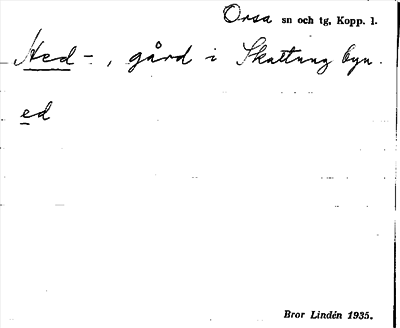 Orsa sn och tg, Kopp. l.
Hed-, gård i Skattungbyn.
ed
Bror Lindén 1935.